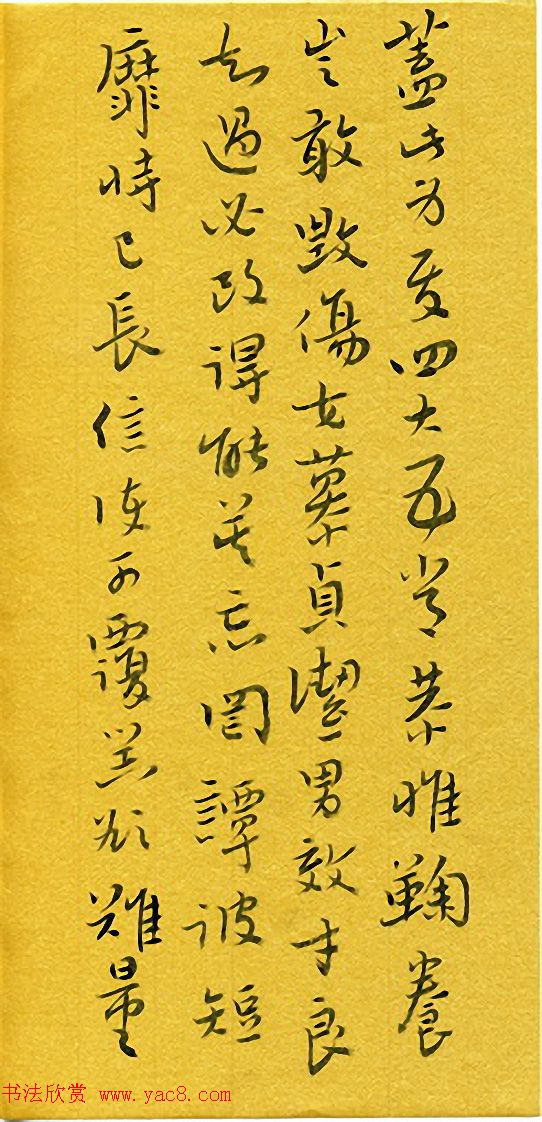 蓋此身髮四大五常恭惟鞠養
豈敢毀傷女慕貞潔男效才良
知過必改得能莫忘罔談彼短
靡恃己長信使可覆器欲難量
书法欣赏 www.yac8.com